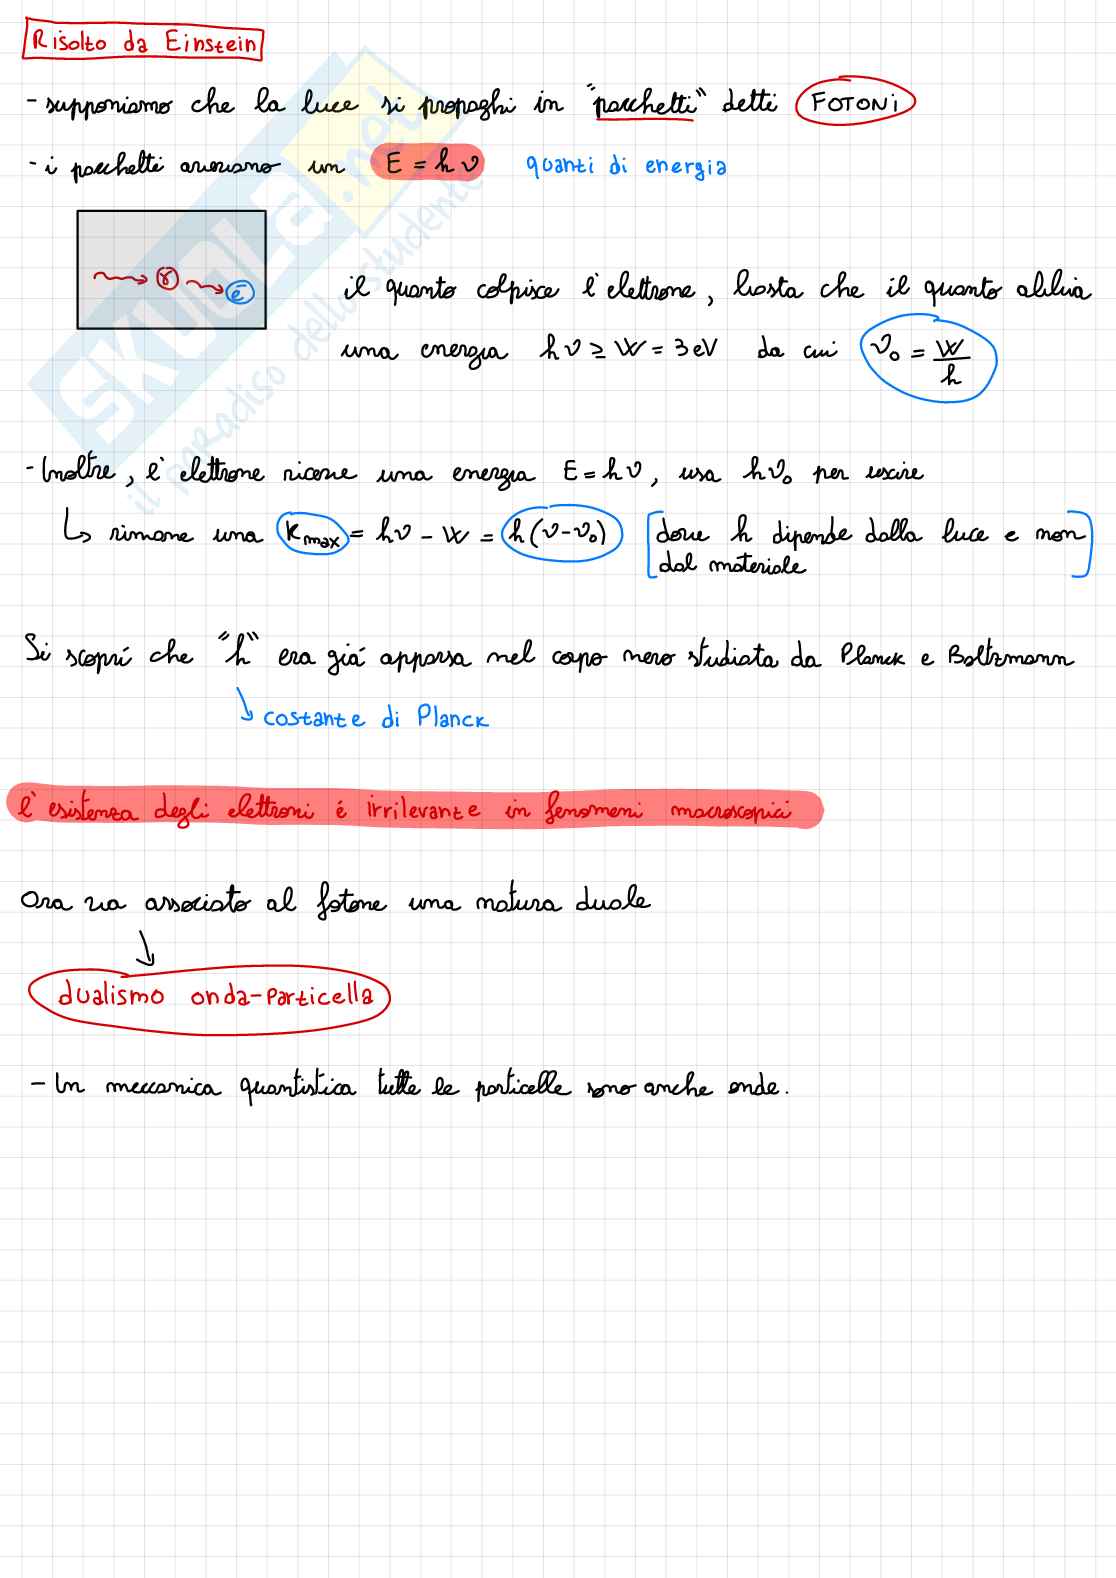 Risolto da Einstein
- supponiamo che la luce si propaghi in "pacchetti" detti FOTONI
- i pacchetti avranno un E = hν quanti di energia
γ e⁻
il quanto colpisce l'elettrone, basta che il quanto abbia
una energia hν ≥ W = 3eV da cui ν₀ = W/h
- Inoltre, l'elettrone riceve una energia E = hν, usa hν₀ per uscire
↳ rimane una Kmax = hν - W = h(ν-ν₀) [dove h dipende dalla luce e non
dal materiale]
Si scoprí che "h" era giá apparsa nel corpo nero studiata da Planck e Boltzmann
↘ costante di Planck
l'esistenza degli elettroni é irrilevante in fenomeni macroscopici
Ora va associato al fotone una natura duale
↓
dualismo onda-particella
- In meccanica quantistica tutte le particelle sono anche onde.
SKUOLA.net
il paradiso dello studente